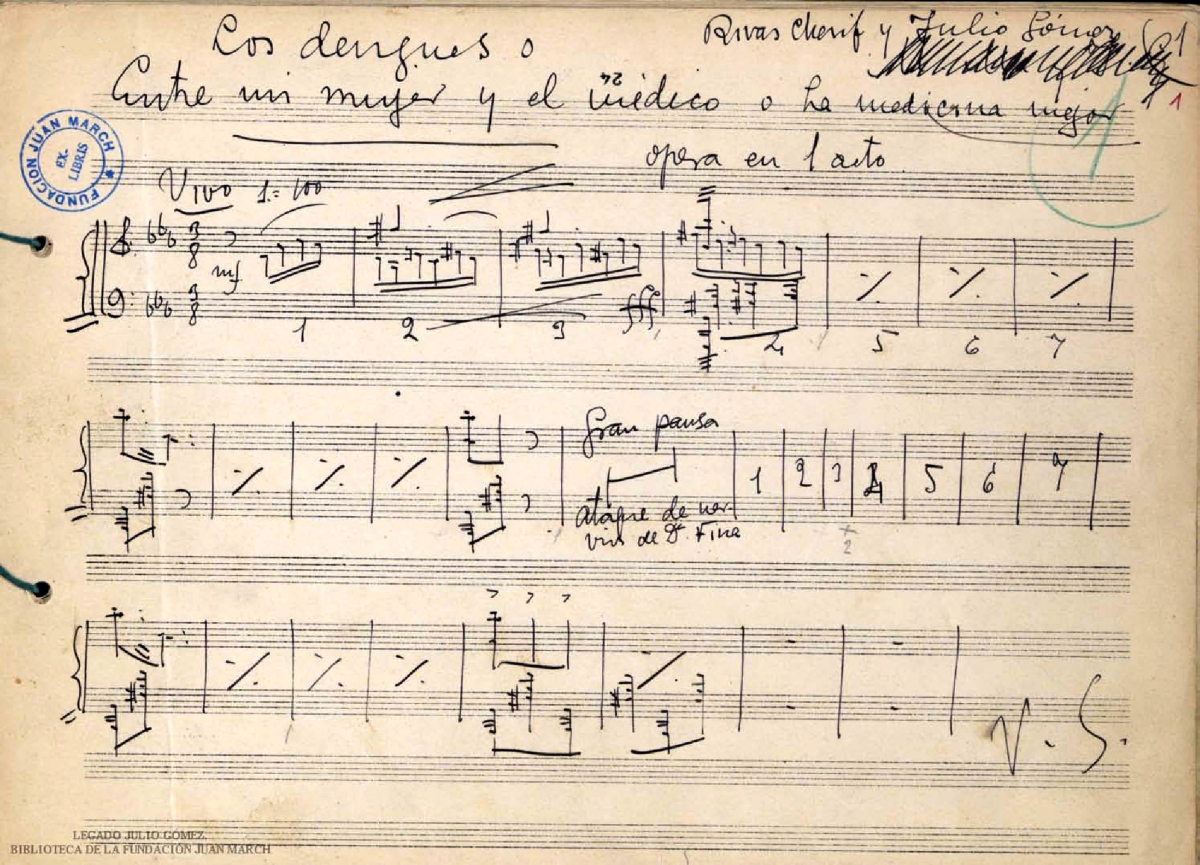 Los dengues o
Rivas Cherif y Julio Gómez
1
Entre mi mujer y el médico o La medicina mejor
24
1
1
opera en 1 acto
FUNDACION JUAN MARCH
EX-LIBRIS
Vivo ♩= 100
3 8
mf
3 8
fff
1 2 3 4 5 6 7
Gran pausa
1 2 3 4 5 6 7
Ataque de ner-
vios de Dª Fina
2
V. S.
LEGADO JULIO GÓMEZ.
BIBLIOTECA DE LA FUNDACIÓN JUAN MARCH